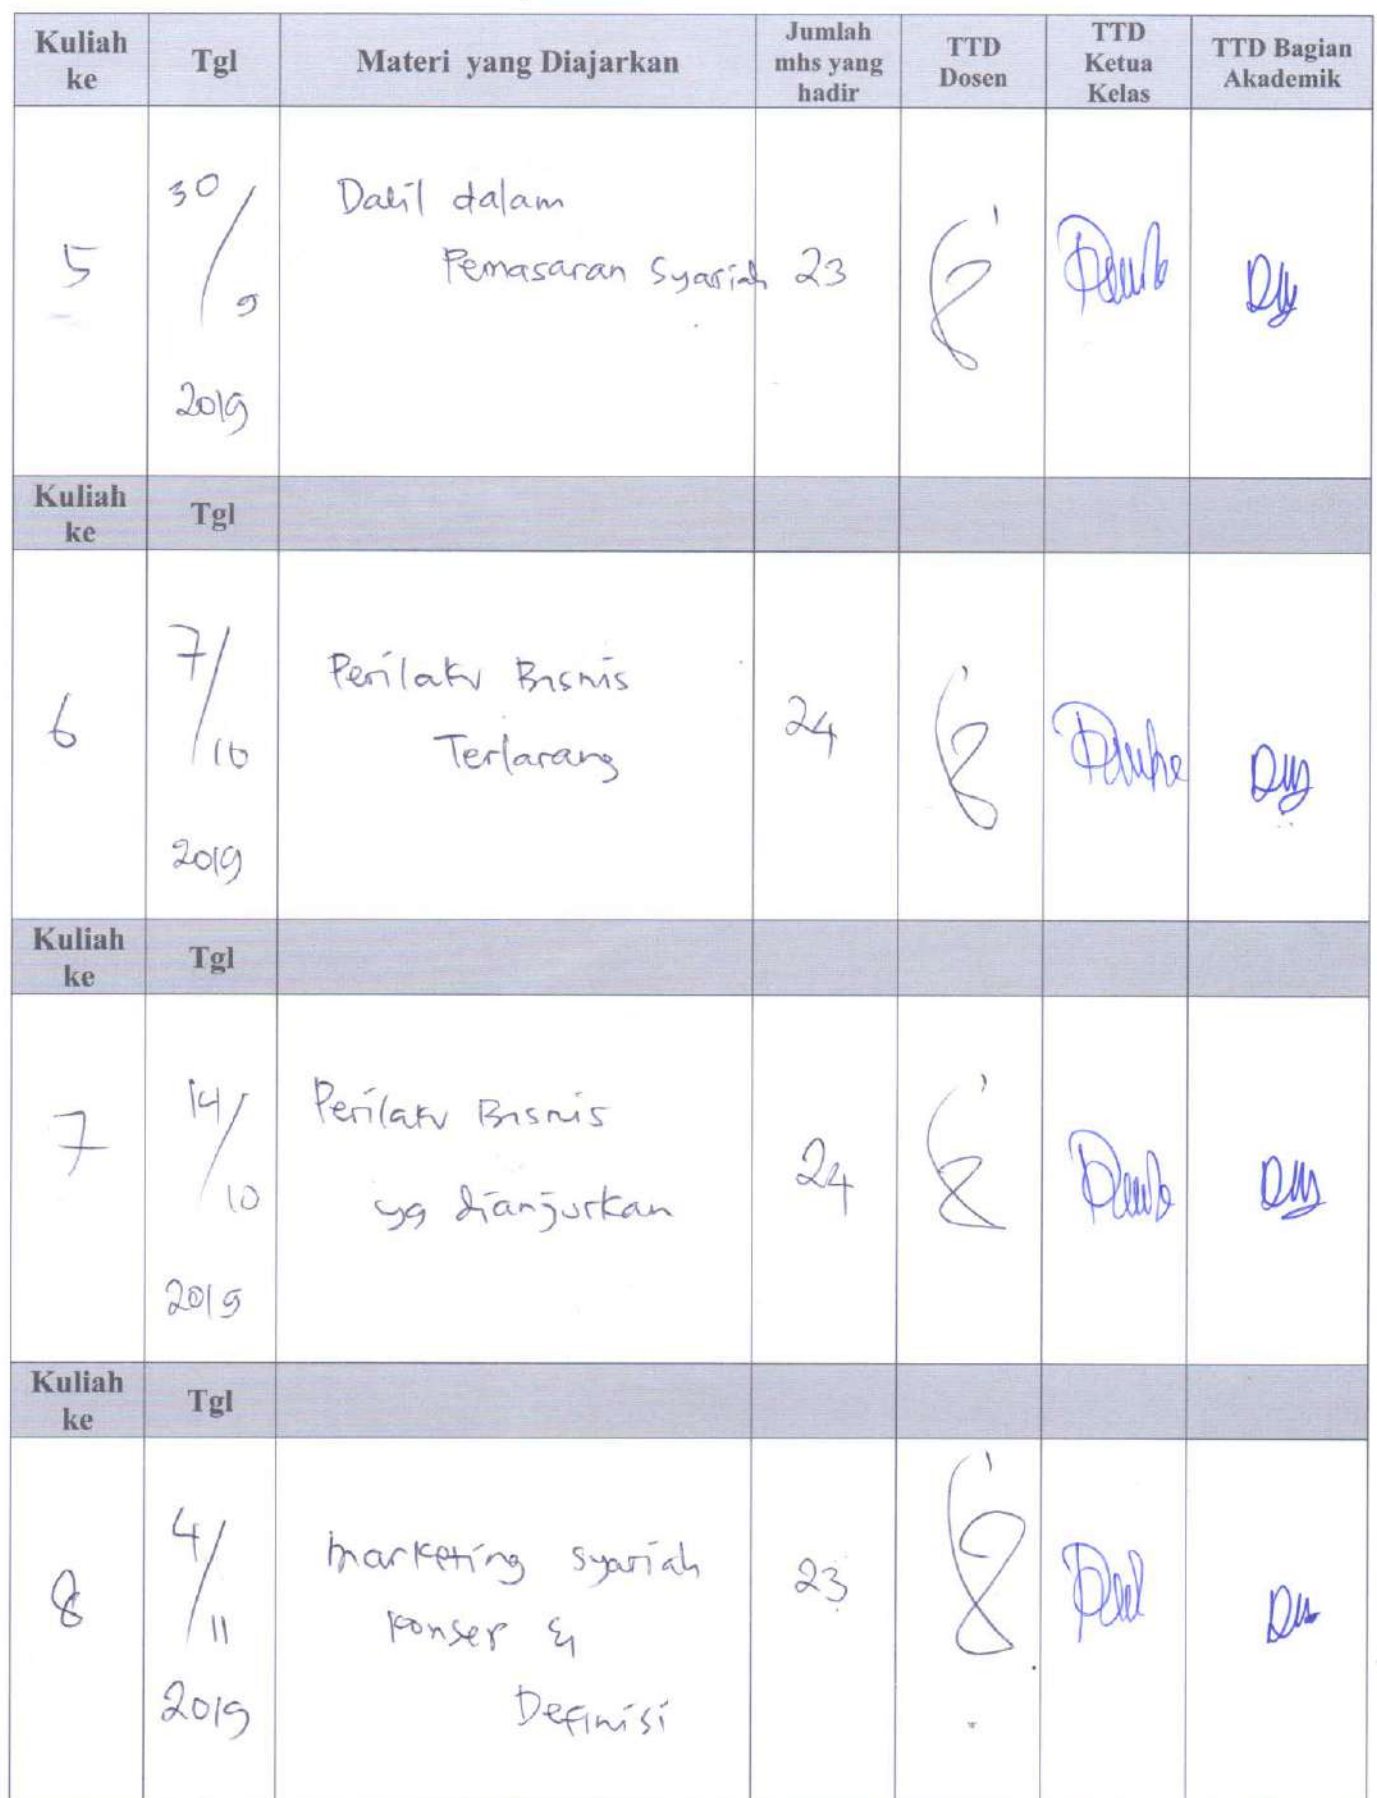 Kuliah ke Tgl Materi yang Diajarkan Jumlah mhs yang hadir TTD Dosen TTD Ketua Kelas TTD Bagian Akademik
5 30/9 2019 Dalil dalam
Pemasaran Syariah 23
Kuliah ke Tgl
6 7/10 2019 Perilaku Bisnis
Terlarang 24
Kuliah ke Tgl
7 14/10 2019 Perilaku Bisnis
yg dianjurkan 24
Kuliah ke Tgl
8 4/11 2019 Marketing Syariah
Konsep &
Definisi 23